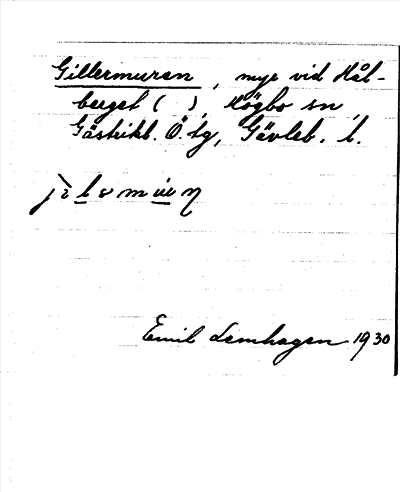 Gillermuren, myr vid Hål-
berget ( ), Högbo sn,
Gästrikl. Ö. tg, Gävleb. l.
Emil Lemhagen 1930